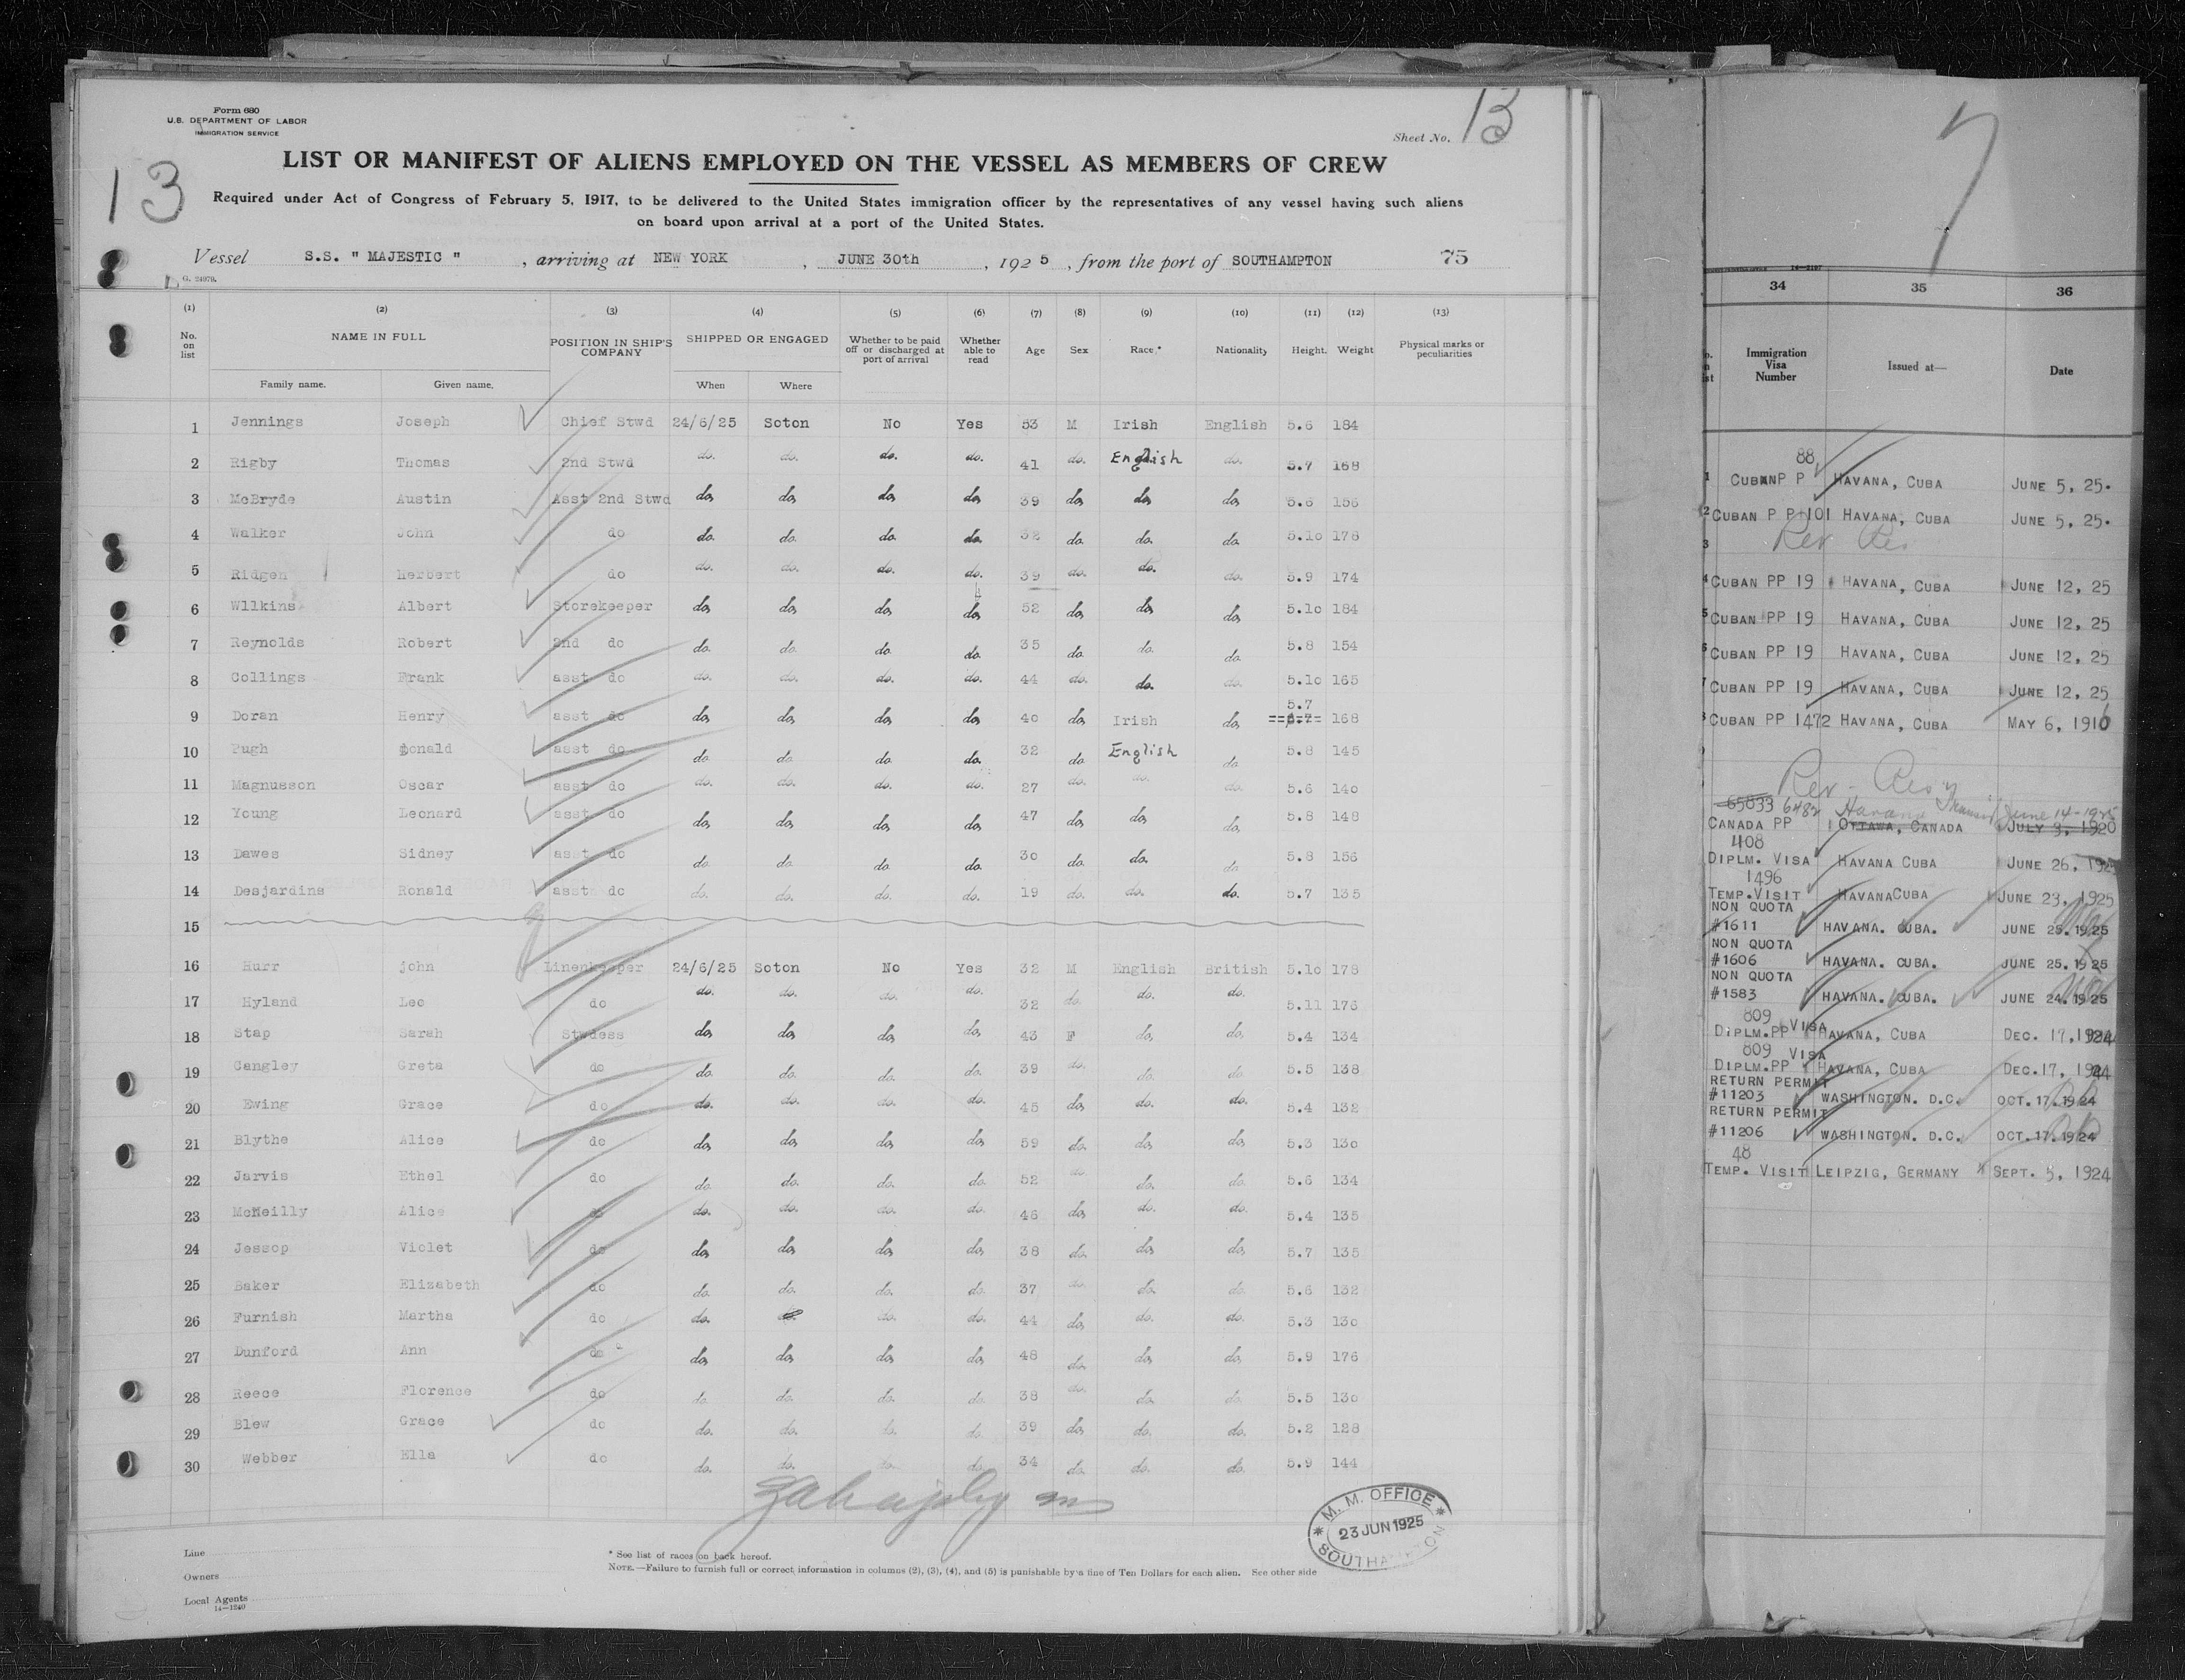 Form 680
U.S. DEPARTMENT OF LABOR
IMMIGRATION SERVICE
Sheet No. 13
13
LIST OR MANIFEST OF ALIENS EMPLOYED ON THE VESSEL AS MEMBERS OF CREW
Required under Act of Congress of February 5, 1917, to be delivered to the United States immigration officer by the representatives of any vessel having such aliens
on board upon arrival at a port of the United States.
Vessel S.S. " MAJESTIC " , arriving at NEW YORK , JUNE 30th , 192 5 , from the port of SOUTHAMPTON 75
G. 24979.
(1) (2) (3) (4) (5) (6) (7) (8) (9) (10) (11) (12) (13)
No. on list NAME IN FULL POSITION IN SHIP'S COMPANY SHIPPED OR ENGAGED Whether to be paid off or discharged at port of arrival Whether able to read Age Sex Race.* Nationality Height. Weight Physical marks or peculiarities
Family name. Given name. When Where
1 Jennings Joseph Chief Stwd 24/6/25 Soton No Yes 53 M Irish English 5.6 184
2 Rigby Thomas 2nd Stwd do. do. do. do. 41 do. English do. 5.7 168
3 McBryde Austin Asst 2nd Stwd do. do. do. do. 39 do. do. do. 5.6 156
4 Walker John do do. do. do. do. 32 do. do. do. 5.10 178
5 Ridgen Herbert do do. do. do. do. 39 do. do. do. 5.9 174
6 Wllkins Albert Storekeeper do. do. do. do. 52 do. do. do. 5.10 184
7 Reynolds Robert 2nd do do. do. do. do. 35 do. do. do. 5.8 154
8 Collings Frank asst do do. do. do. do. 44 do. do. do. 5.10 165
9 Doran Henry asst do do. do. do. do. 40 do. Irish do. 5.7 168
10 Pugh Donald asst do do. do. do. do. 32 do. English do 5.8 145
11 Magnusson Oscar asst do do. do. do. do. 27 do. do. do. 5.6 140
12 Young Leonard asst do do. do. do. do. 47 do. do. do. 5.8 148
13 Dawes Sidney asst do do. do. do. do. 30 do. do. do 5.8 156
14 Desjardins Ronald asst do do. do. do. do. 19 do. do. do. 5.7 135
15
16 Hurr john Linenkeeper 24/6/25 Soton No Yes 32 M English British 5.10 178
17 Hyland Leo do do. do. do. do. 32 do. do. do. 5.11 176
18 Stap Sarah Stwdess do. do. do. do. 43 F do. do. 5.4 134
19 Cangley Greta do do. do. do. do. 39 do. do. do 5.5 138
20 Ewing Grace do do. do. do. do. 45 do. do. do. 5.4 132
21 Blythe Alice do do. do. do. do. 59 do. do. do. 5.3 130
22 Jarvis Ethel do do. do. do. do. 52 do do. do. 5.6 134
23 McNeilly Alice do do. do. do. do. 46 do. do. do. 5.4 135
24 Jessop Violet do do. do. do. do. 38 do. do. do. 5.7 135
25 Baker Elizabeth do do. do. do. do. 37 do. do. do. 5.6 132
26 Furnish Martha do do. do. do. do. 44 do. do. do. 5.3 130
27 Dunford Ann do do. do. do. do. 48 do. do. do. 5.9 176
28 Reece Florence do do. do. do. do. 38 do. do. do. 5.5 130
29 Blew Grace do do. do. do. do. 39 do. do. do. 5.2 128
30 Webber Ella do do. do. do. do. 34 do. do. do. 5.9 144
M. M. OFFICE
23 JUN 1925
SOUTHAMPTON
Line
Owners
Local Agents
14-1240
* See list of races on back hereof.
NOTE.—Failure to furnish full or correct information in columns (2), (3), (4), and (5) is punishable by a fine of Ten Dollars for each alien. See other side
7
14-2197
34 35 36
Immigration Visa Number Issued at— Date
88
1 CUBAN P P HAVANA, CUBA JUNE 5, 25.
2 CUBAN P P 101 HAVANA, CUBA JUNE 5, 25.
3
4 CUBAN PP 19 HAVANA, CUBA JUNE 12, 25
5 CUBAN PP 19 HAVANA, CUBA JUNE 12, 25
6 CUBAN PP 19 HAVANA, CUBA JUNE 12, 25
7 CUBAN PP 19 HAVANA, CUBA JUNE 12, 25
8 CUBAN PP 1472 HAVANA, CUBA MAY 6, 1916
65833 6482 Havana Transit June 14-1925
CANADA PP OTTAWA, CANADA JULY 3, 1920
408
DIPLM. VISA HAVANA CUBA JUNE 26, 1925
1496
TEMP. VISIT HAVANA CUBA JUNE 23, 1925
NON QUOTA
#1611 HAVANA. CUBA. JUNE 25.1925
NON QUOTA
#1606 HAVANA. CUBA. JUNE 25.1925
NON QUOTA
#1583 HAVANA. CUBA. JUNE 24.1925
809
DIPLM.PP VISA HAVANA, CUBA DEC. 17, 1924
809 VISA
DIPLM.PP HAVANA, CUBA DEC.17, 1924
RETURN PERMIT
#11203 WASHINGTON. D.C. OCT.17.1924
RETURN PERMIT
#11206 WASHINGTON. D.C. OCT.17.1924
48
TEMP. VISIT LEIPZIG, GERMANY SEPT. 5, 1924